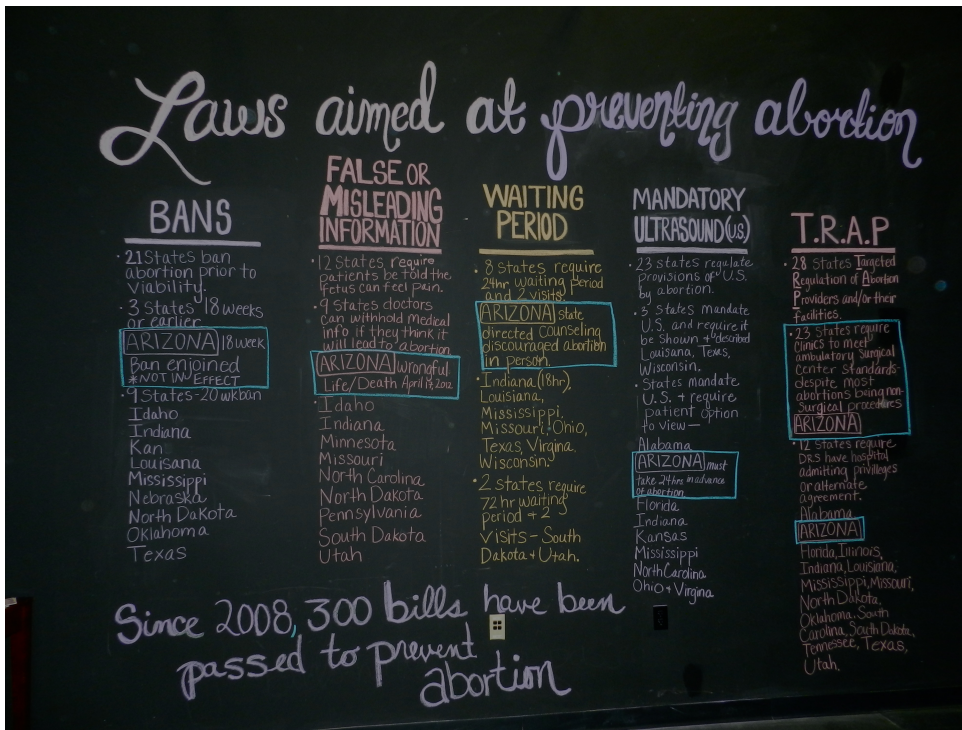 Laws aimed at preventing abortion
BANS
• 21 States ban
abortion prior to
viability.
• 3 States 18 weeks
or earlier
ARIZONA 18 week
Ban enjoined
*NOT IN EFFECT
• 9 States-20 wk ban
Idaho
Indiana
Kan
Louisana
Mississippi
Nebraska
North Dakota
Oklahoma
Texas
FALSE OR
MISLEADING
INFORMATION
• 12 States require
patients be told the
fetus can feel pain.
• 9 States doctors
can withhold Medical
info if they think it
will lead to abortion
ARIZONA wrongful
Life/Death April 17, 2012
• Idaho
Indiana
Minnesota
Missouri
North Carolina
North Dakota
Pennsylvania
South Dakota
Utah
WAITING
PERIOD
• 8 States require
24hr waiting period
and 2 visits.
ARIZONA state
directed counseling
discouraged abortion
in person.
• Indiana (18hr),
Louisiana,
Mississippi,
Missouri, Ohio,
Texas, Virgina.
Wisconsin.
• 2 States require
72 hr waiting
period + 2
visits - South
Dakota + Utah.
MANDATORY
ULTRASOUND (U.S.)
• 23 states regulate
provisions of U.S.
by abortion.
• 3 States mandate
U.S. and require it
be shown + described
Louisiana, Texas,
Wisconsin.
• States mandate
U.S. + require
patient option
to view—
Alabama
ARIZONA must
take 24hrs in advance
of abortion
Florida
Indiana
Kansas
Mississippi
North Carolina
Ohio + Virgina
T.R.A.P
• 28 States Targeted
Regulation of Abortion
Providers and/or their
facilities.
• 23 States require
clinics to meet
ambulatory surgical
center standards
despite most
abortions being non-
surgical procedures
ARIZONA
• 12 States require
DRS have hospital
admitting privilleges
or alternate
agreement.
Alabama
ARIZONA
Florida, Illinois,
Indiana, Louisiana,
Mississippi, Missouri,
North Dakota,
Oklahoma, South
Carolina, South Dakota,
Tennessee, Texas,
Utah.
Since 2008, 300 bills have been
passed to prevent
abortion